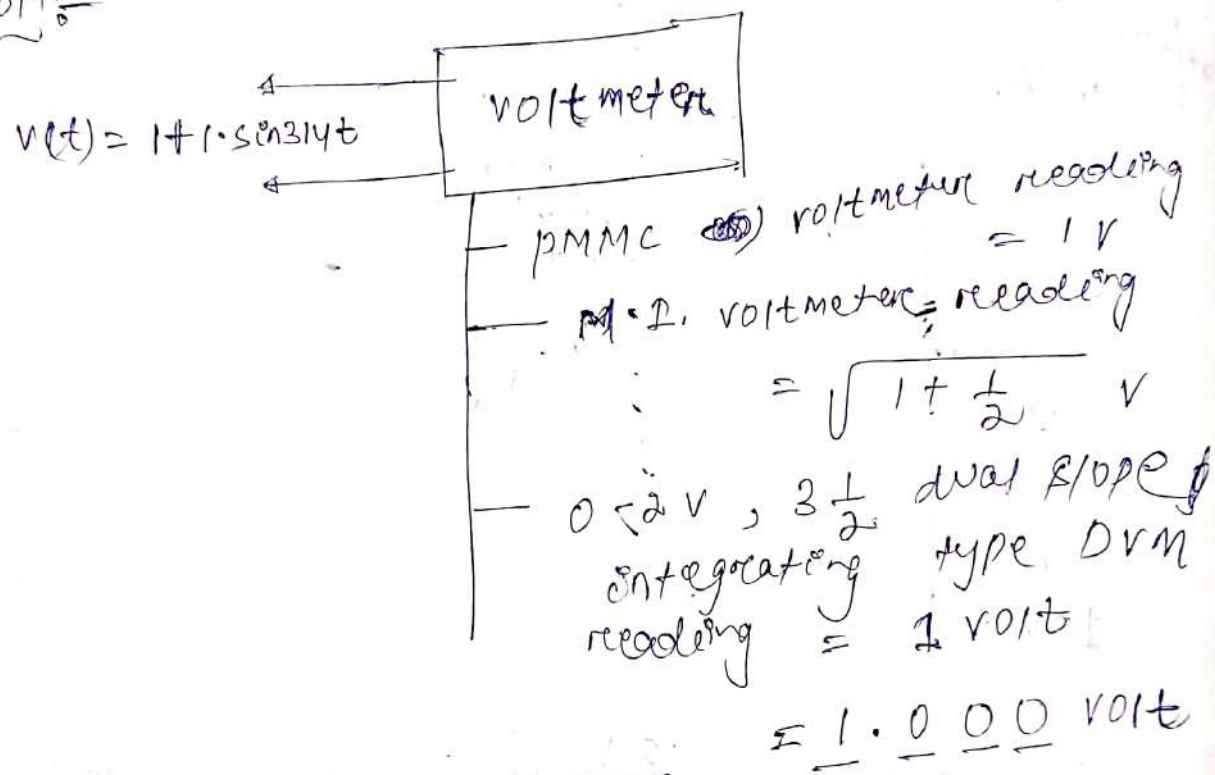 voltmeter
v(t) = 1+1.sin314t
PMMC voltmeter reading
= 1 V
M.I. voltmeter reading
= √(1 + 1/2) V
0-2 V, 3 1/2 dual slope
integrating type DVM
reading = 1 volt
= 1.000 volt